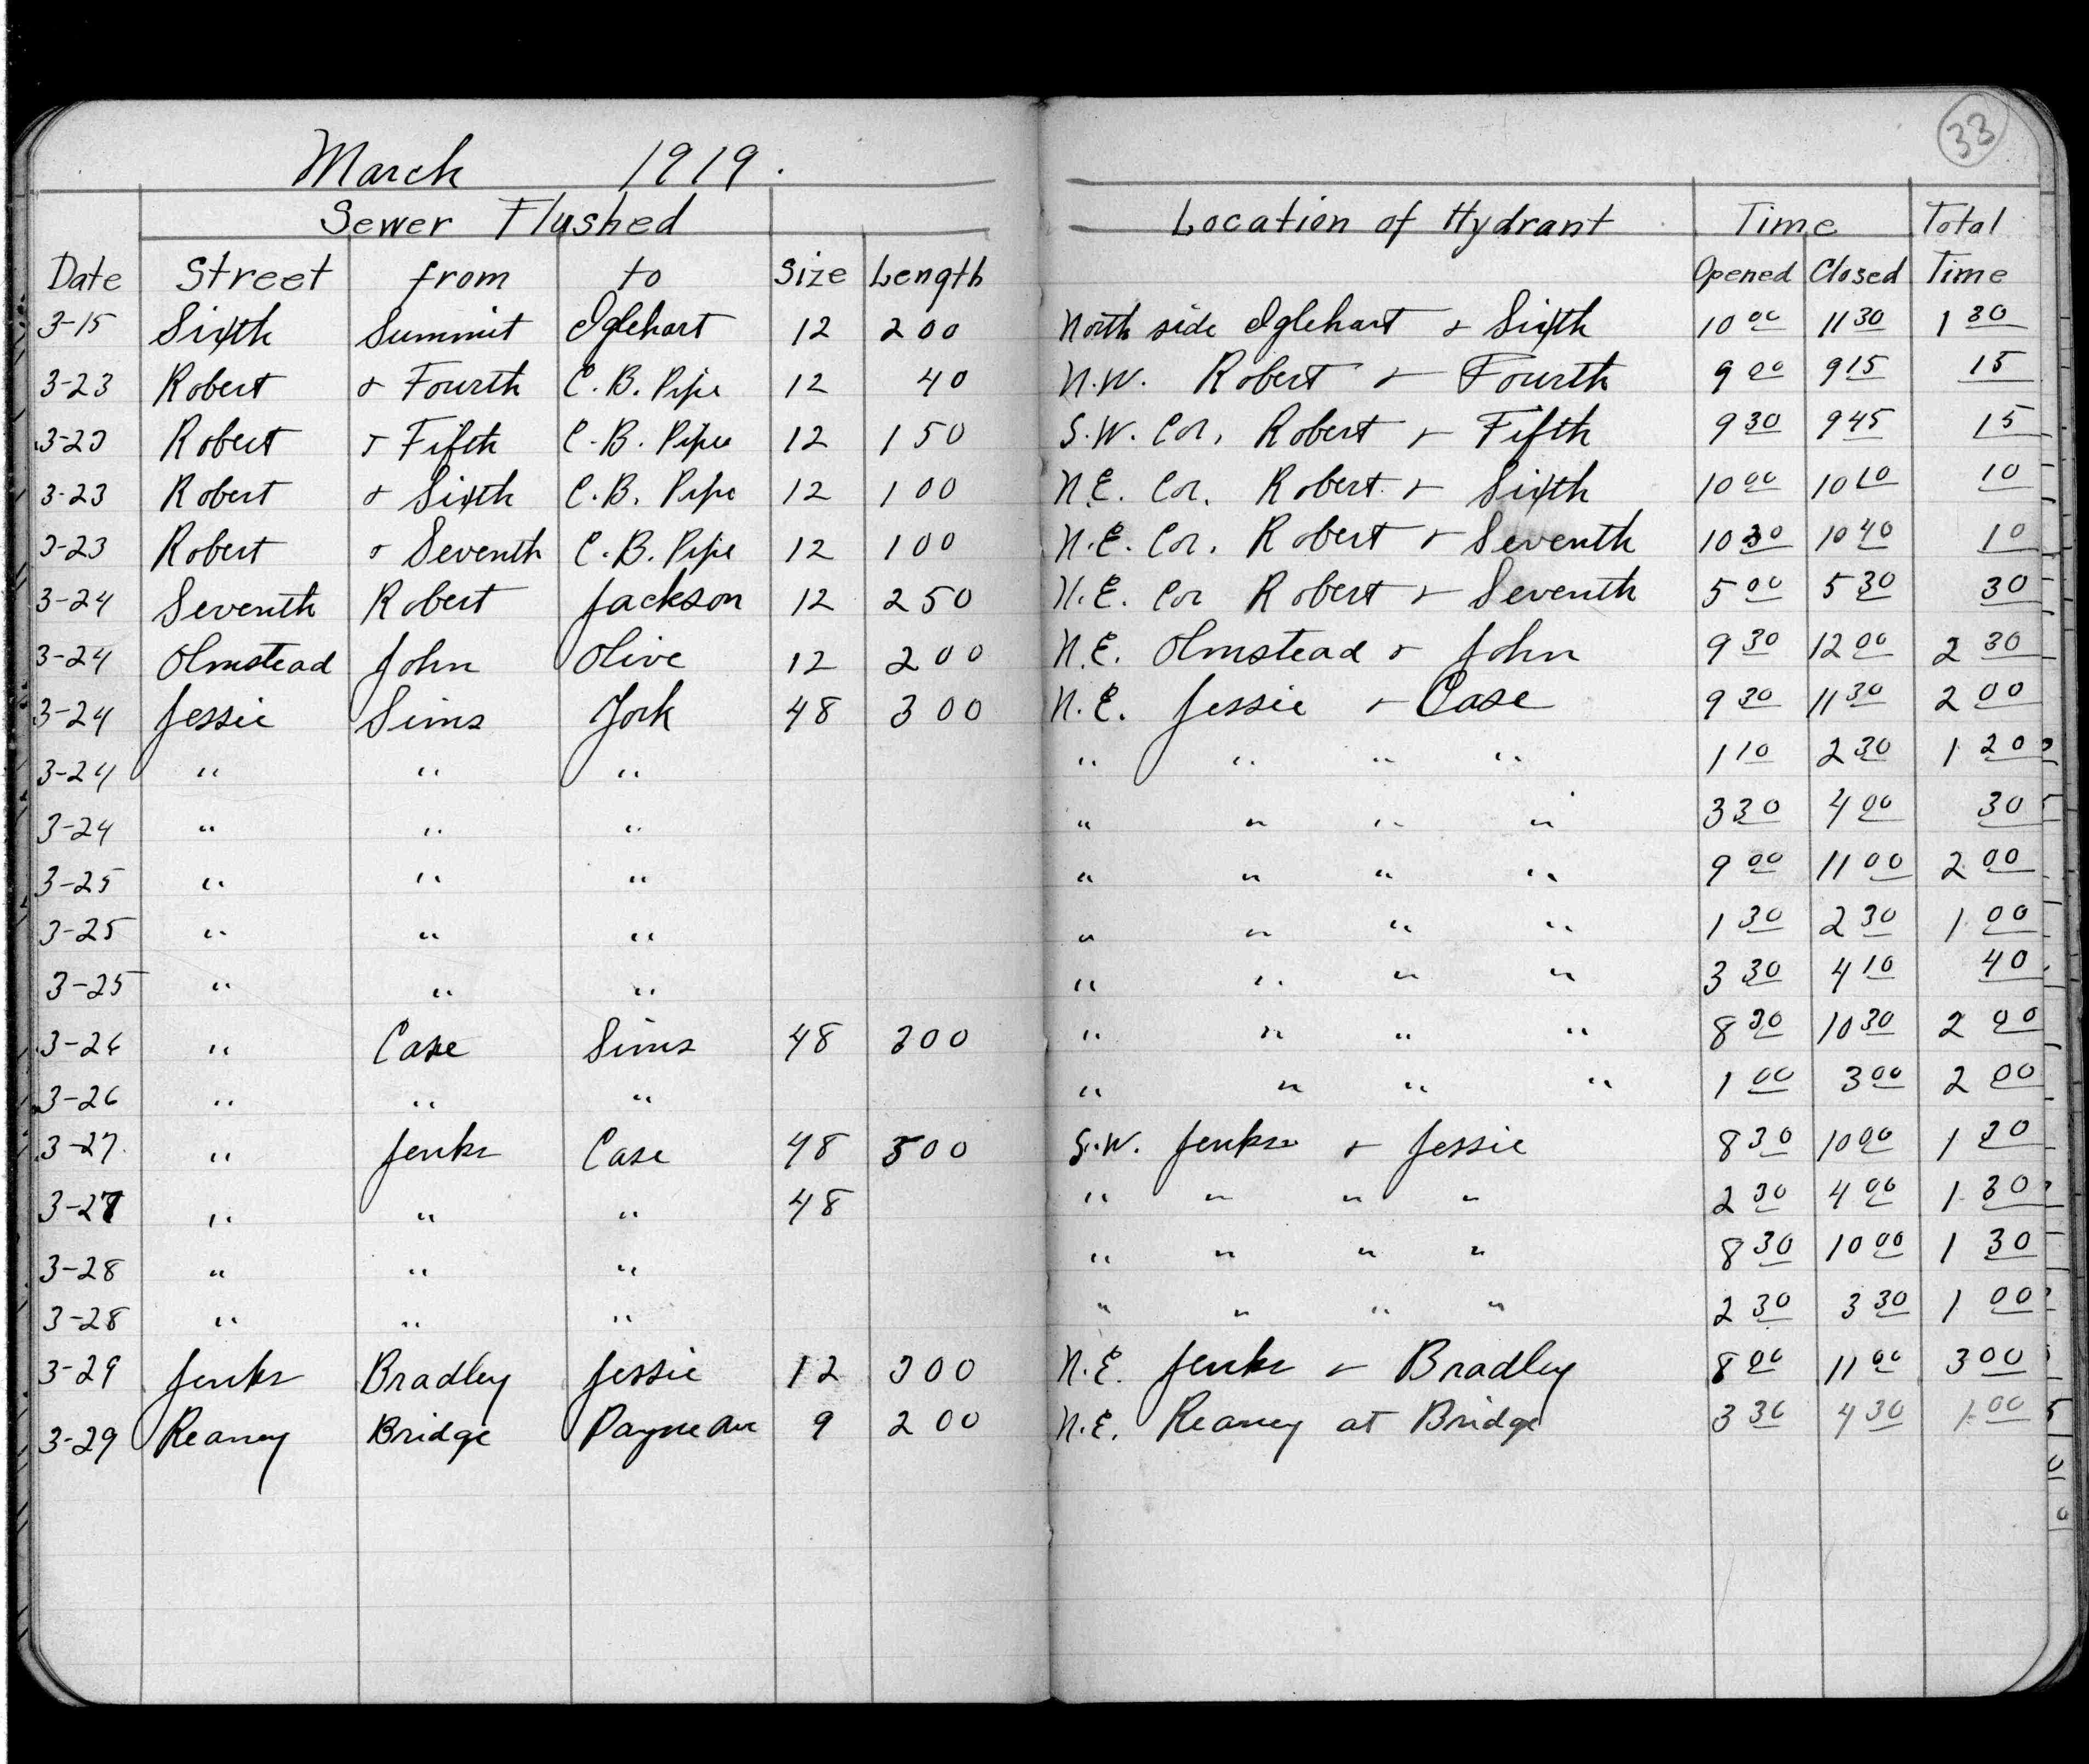 33
March 1919.
Sewer Flushed Location of Hydrant Time Total
Date Street from to Size Length Opened Closed Time
3-15 Sixth Summit Iglehart 12 200 North side Iglehart & Sixth 10 00 11 30 1 30
3-23 Robert & Fourth C.B. Pipe 12 40 N.W. Robert & Fourth 9 00 9 15 15
3-23 Robert & Fifth C.B. Pipe 12 150 S.W. Cor. Robert & Fifth 9 30 9 45 15
3-23 Robert & Sixth C.B. Pipe 12 100 N.E. Cor. Robert & Sixth 10 00 10 10 10
3-23 Robert & Seventh C.B. Pipe 12 100 N.E. Cor. Robert & Seventh 10 30 10 40 10
3-24 Seventh Robert Jackson 12 250 N.E. Cor Robert & Seventh 5 00 5 30 30
3-24 Olmstead John Olive 12 200 N.E. Olmstead & John 9 30 12 00 2 30
3-24 Jessie Sims York 48 300 N.E. Jessie & Case 9 30 11 30 2 00
3-24 " " " " " " " 1 10 2 30 1 20
3-24 " " " " " " " 3 30 4 00 30
3-25 " " " " " " " 9 00 11 00 2 00
3-25 " " " " " " " 1 30 2 30 1 00
3-25 " " " " " " " 3 30 4 10 40
3-26 " Case Sims 48 300 " " " " 8 30 10 30 2 00
3-26 " " " " " " " 1 00 3 00 2 00
3-27 " Jenks Case 48 500 S.W. Jenks & Jessie 8 30 10 00 1 30
3-27 " " " 48 " " " " 2 30 4 00 1 30
3-28 " " " " " " " 8 30 10 00 1 30
3-28 " " " " " " " 2 30 3 30 1 00
3-29 Jenks Bradley Jessie 12 300 N.E. Jenks & Bradley 8 00 11 00 3 00
3-29 Reaney Bridge Payne Ave 9 200 N.E. Reaney at Bridge 3 30 4 30 1 00